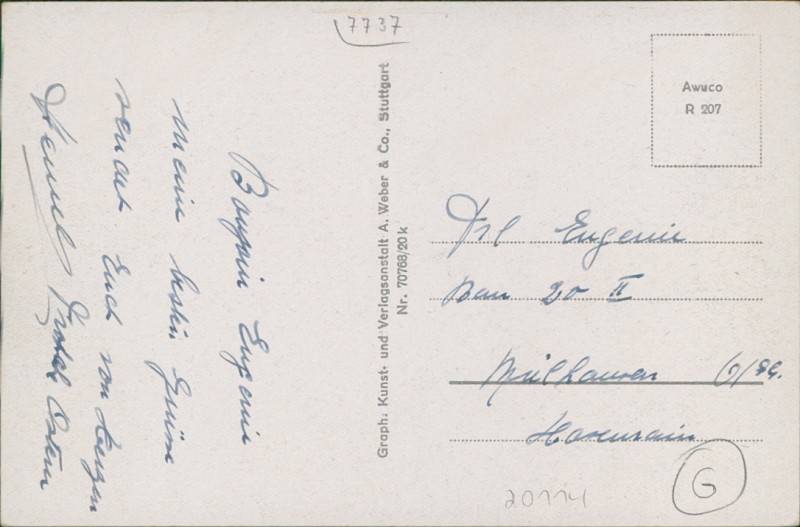 7737
Awuco
R 207
Graph. Kunst- und Verlagsanstalt A. Weber & Co., Stuttgart
Nr. 70768/20 k
Eugenie
Meine besten Grüsse
sendet Euch von Herzen
Ostern
Frl Eugenie
Bau 20 II
Mülhausen
Hasenrain
20114
G